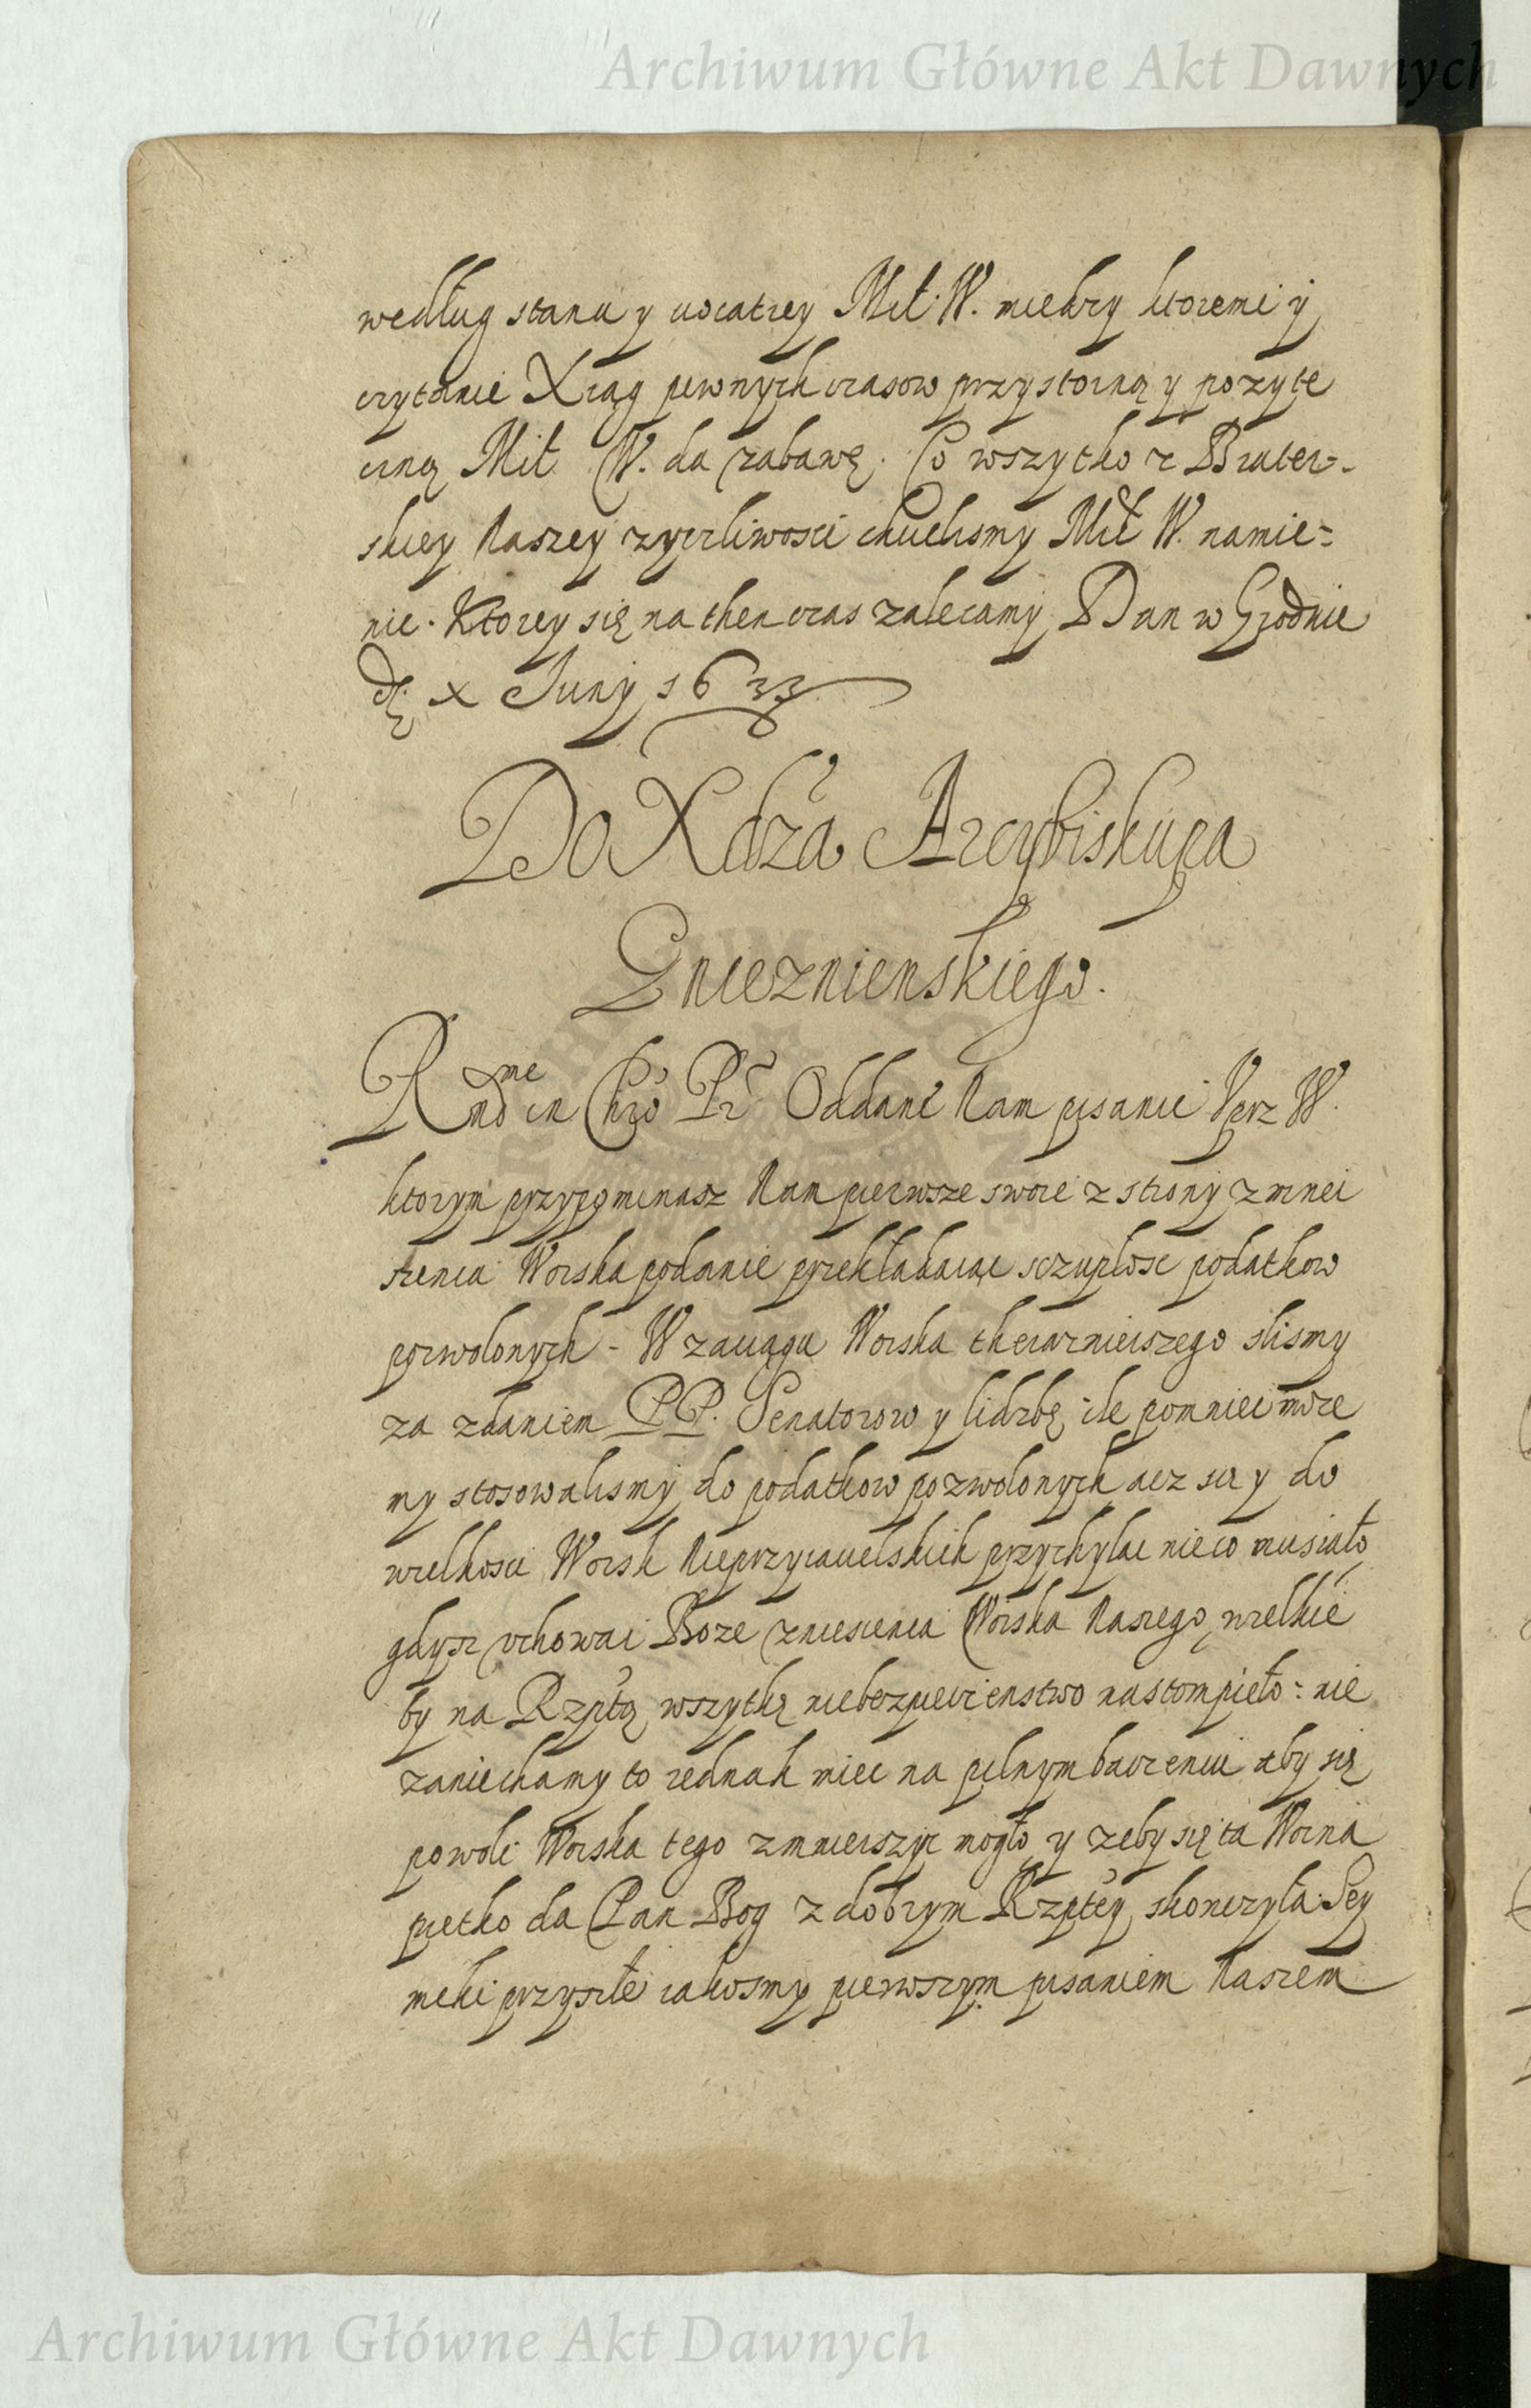 Archiwum Główne Akt Dawnych
według stanu y uciatzey Mił: W. miedzy ktoremi y
czytanie Xiąg pewnych czasow przystoiną y pozyte
czną Mił. W. da zabawę. Co wszytko z Brater-
skiey Naszey zyczliwosci chcielismy Mił W. namie=
nic. Ktorey się na then czas zalecamy Dan w Grodnie
d. x Juny 1633
Do Xdza Arcybiskupa
Gnieznienskiego.
Rndme in Chrō Pr Oddane Nam pisanie Uprz W.
ktorym przypominasz Nam pierwsze swoie z strony zmnei
szenia Woiska podanie przekładaiąc sczupłosc podatkow
pozwolonych - W zaciągu Woiska theraznieiszego slismy
za zdaniem PP. Senatorow y lidzbę ile pomniec moze
my stosowalismy do podatkow pozwolonych acz się y do
wielkosci Woisk Nieprzyiacielskich przychylac nieco musiało
gdysz uchowai Boze zniesienia Woiska Naszego wielkie
by na Rzptą wszytkę niebezpieczenstwo nastompieło: nie
zaniechamy to iednak miec na pilnym baczeniu aby się
powoli Woiska tego zmnieiszyc mogło y zeby się ta Woina
prętko da Pan Bog z dobrym Rzptey skonczyła. Sey
miki przyszłe iakosmy pierwszym pisaniem Naszem
Archiwum Główne Akt Dawnych